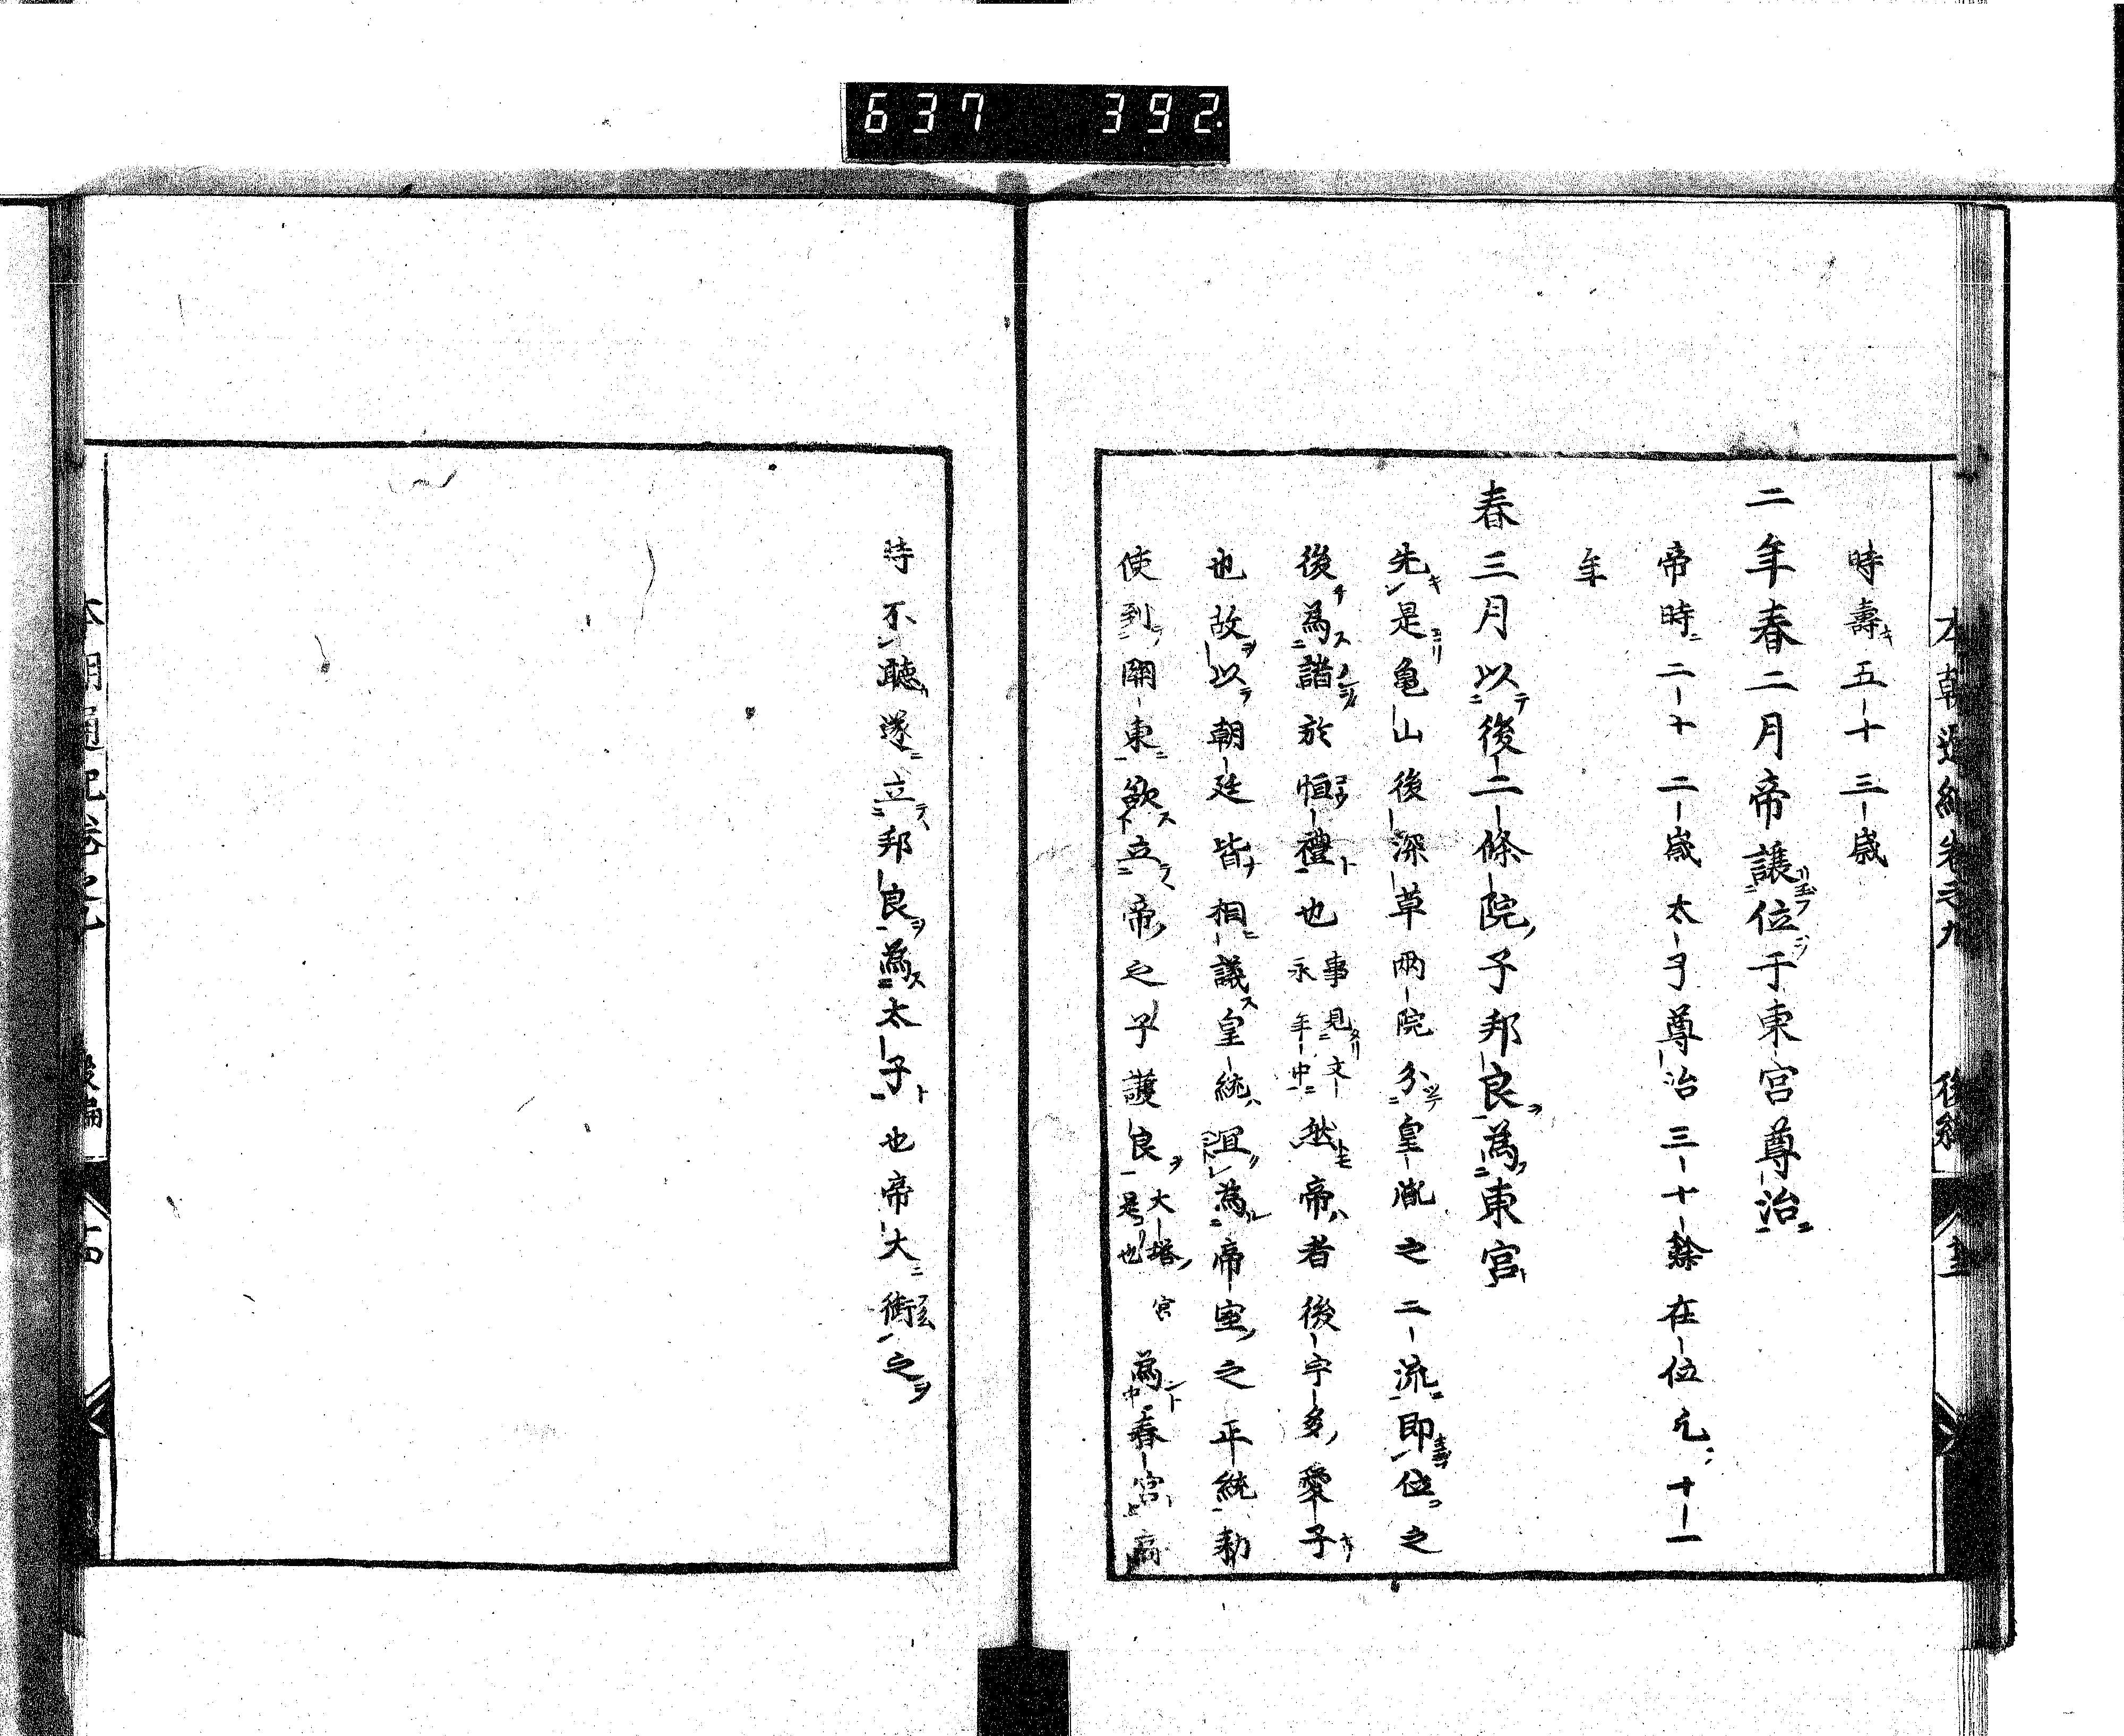 637 392
本朝通紀卷之九 後編
時壽五十三歳
二年春二月帝讓位于東宮尊治
帝時二十二歳太子尊治三十餘在位凡十一
年
春三月以後二條院子邦良為東宮
先是龜山後深草兩院分皇胤之二流即位之
後為諧於恒禮也事見文永年中然帝者後宇多愛子
也故以朝廷皆相議皇統宜為帝室之正統勅
使到關東欲立帝之子護良大塔宮是也為春宮高
時不聽遂立邦良為太子也帝大銜之
本朝通紀卷之九 後編 十四